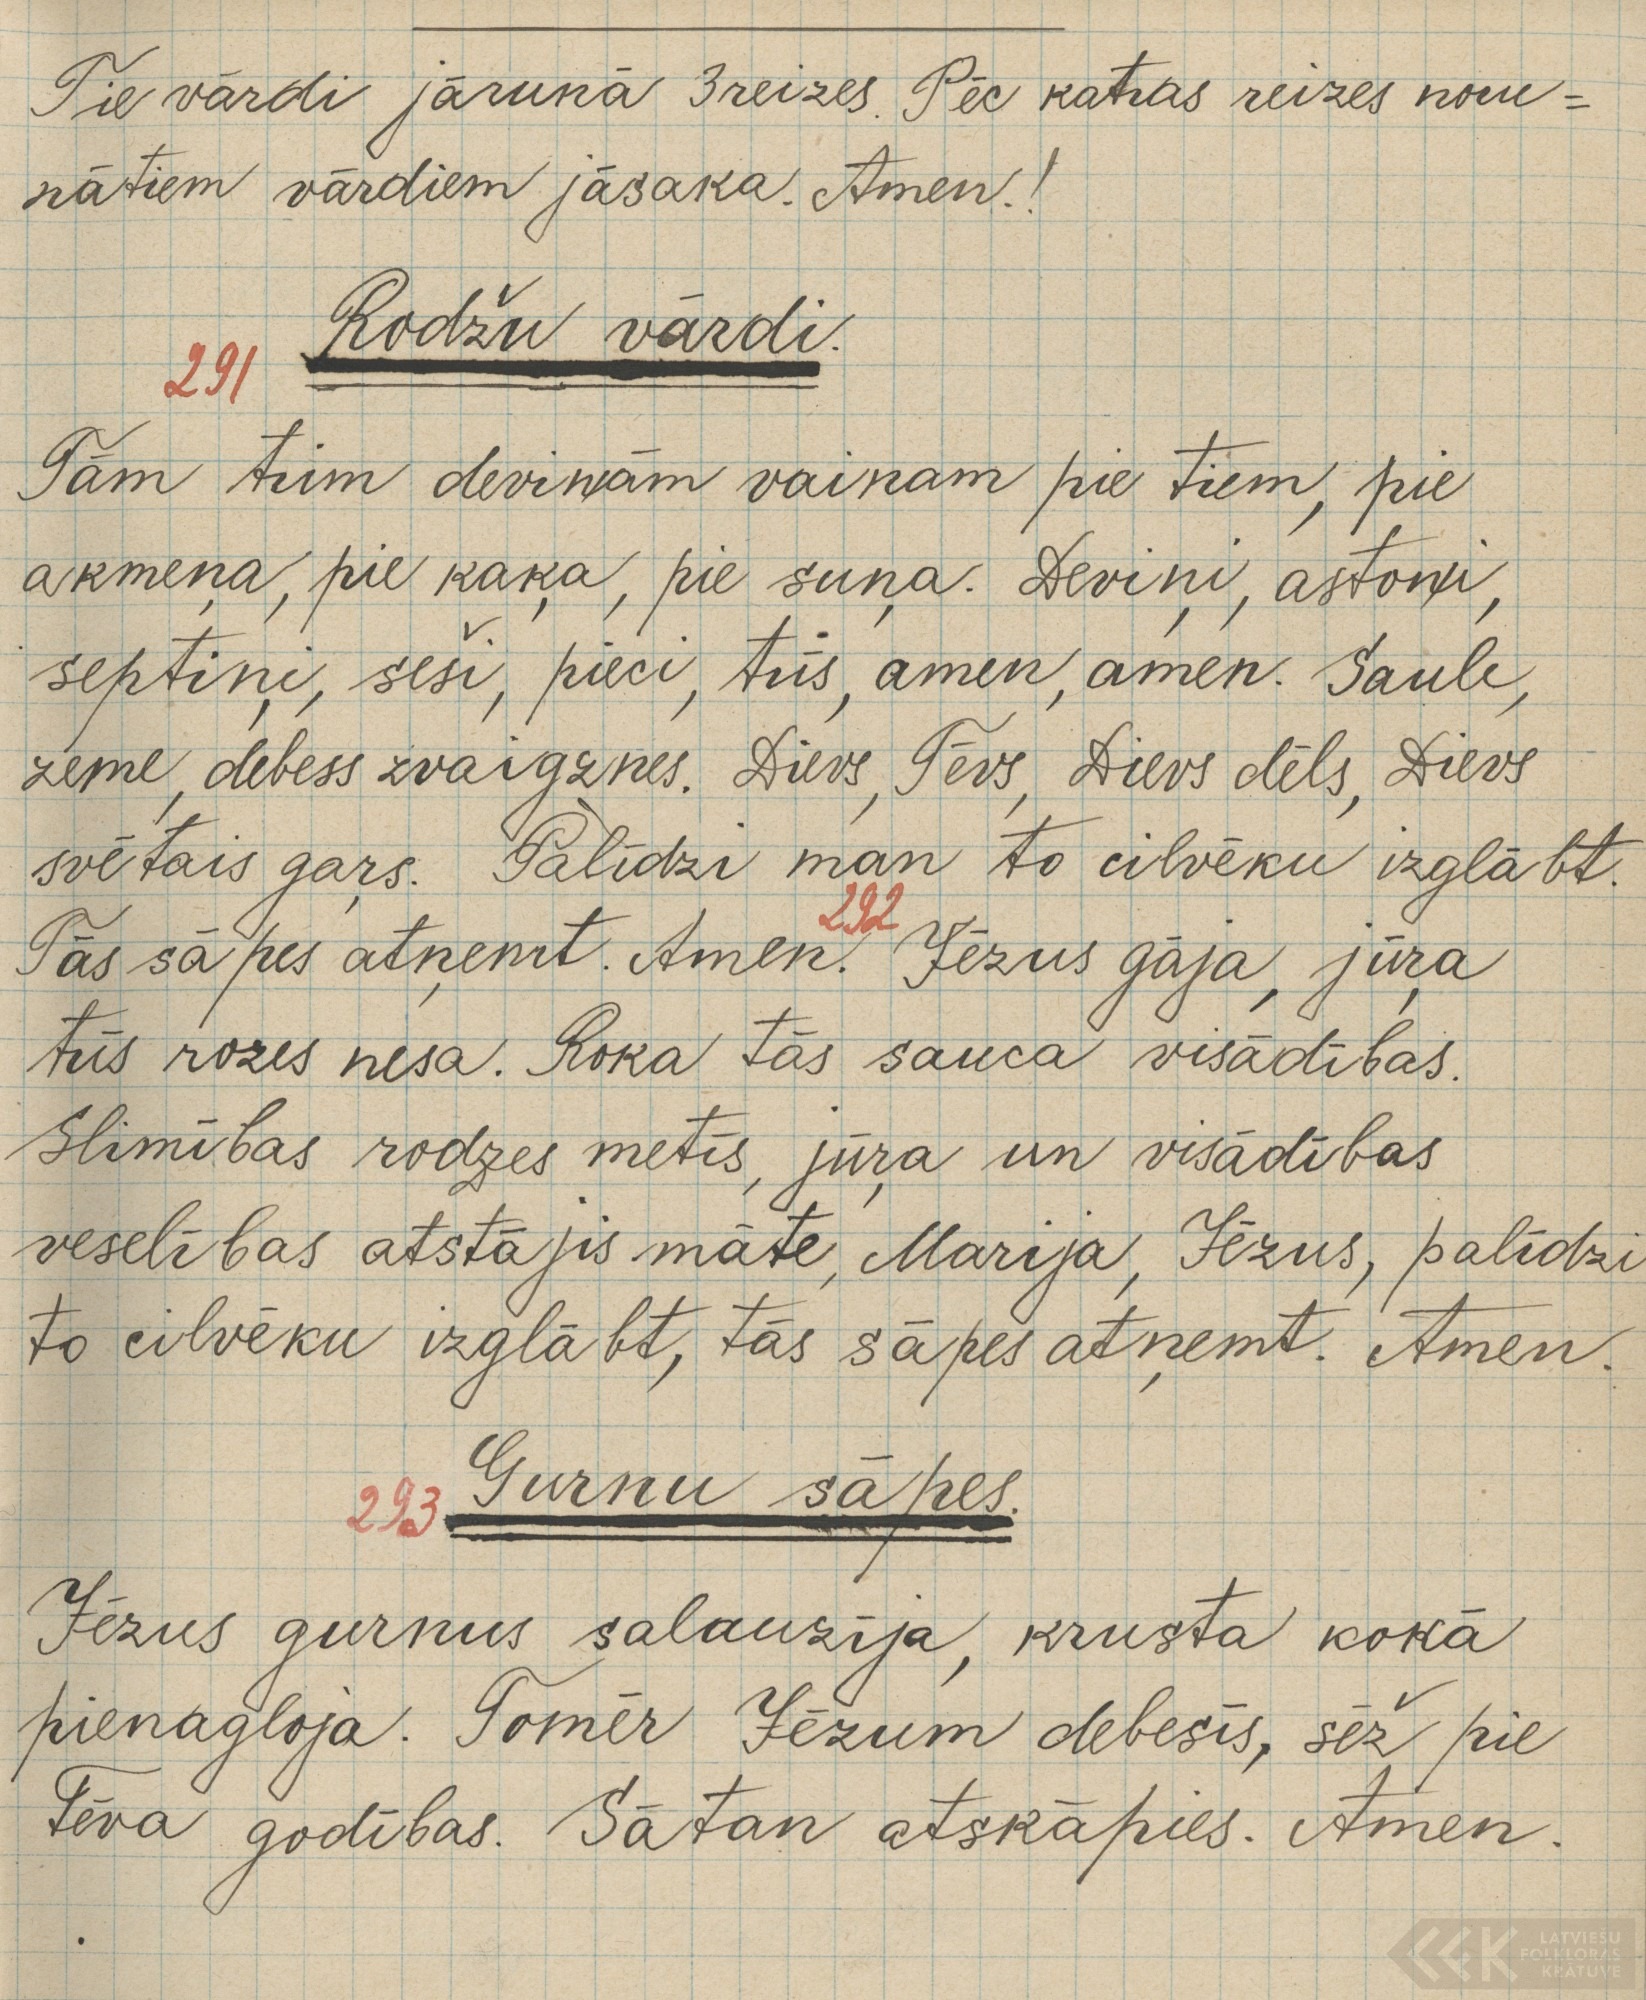 Tie vārdi jārunā 3 reizes. Pēc katras reizes noru=
nātiem vārdiem jāsaka. Amen.!
Rodžu vārdi.
291
Tām trim deviņām vainam pie tiem, pie
akmeņa, pie kaķa, pie suņa. Deviņi, astoņi,
septiņi, seši, pieci, trīs, amen, amen. Saule,
zeme, debess zvaigznes. Dievs, Tēvs, Dievs dēls, Dievs
svētais gaŗs. Palīdzi man to cilvēku izglābt.
292
Tās sāpes atņemt. Amen. Jēzus gāja, jūŗa
trīs rozes nesa. Roka tās sauca visādības.
Slimības rodzes metīs, jūŗa un visādības
veselības atstājis māte, Marija, Jēzus, palīdzi
to cilvēku izglābt, tās sāpes atņemt. Amen.
293 Gurnu sāpes.
Jēzus gurnus salauzīja, krusta kokā
pienagloja. Tomēr Jēzum debesīs, sēž pie
Tēva godības. Sātan atskāpies. Amen.
LATVIEŠU
FOLKLORAS
KRĀTUVE